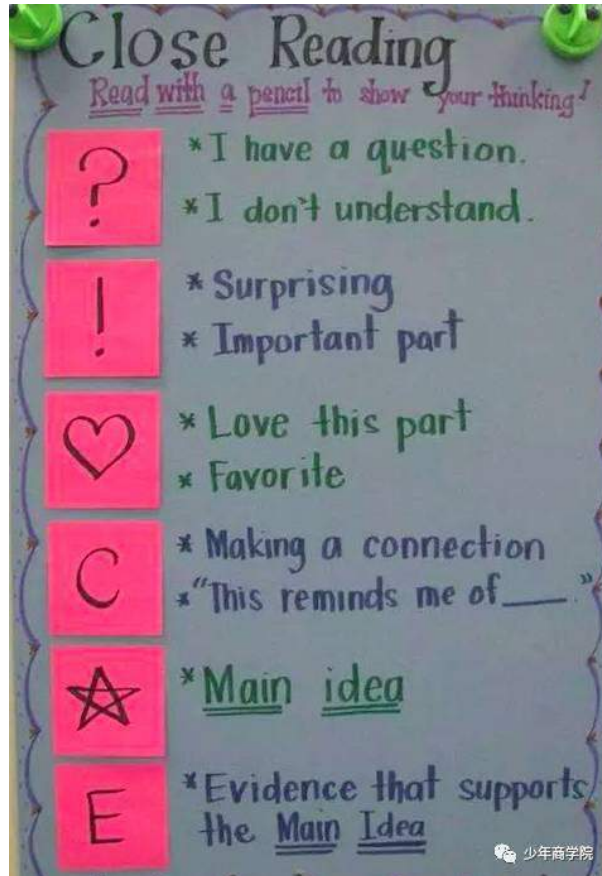 Close Reading
Read with a pencil to show your thinking!
?
*I have a question.
*I don't understand.
!
*Surprising
*Important part
*Love this part
*Favorite
C
*Making a connection
*"This reminds me of ___."
*Main idea
E
*Evidence that supports
the Main Idea
少年商学院